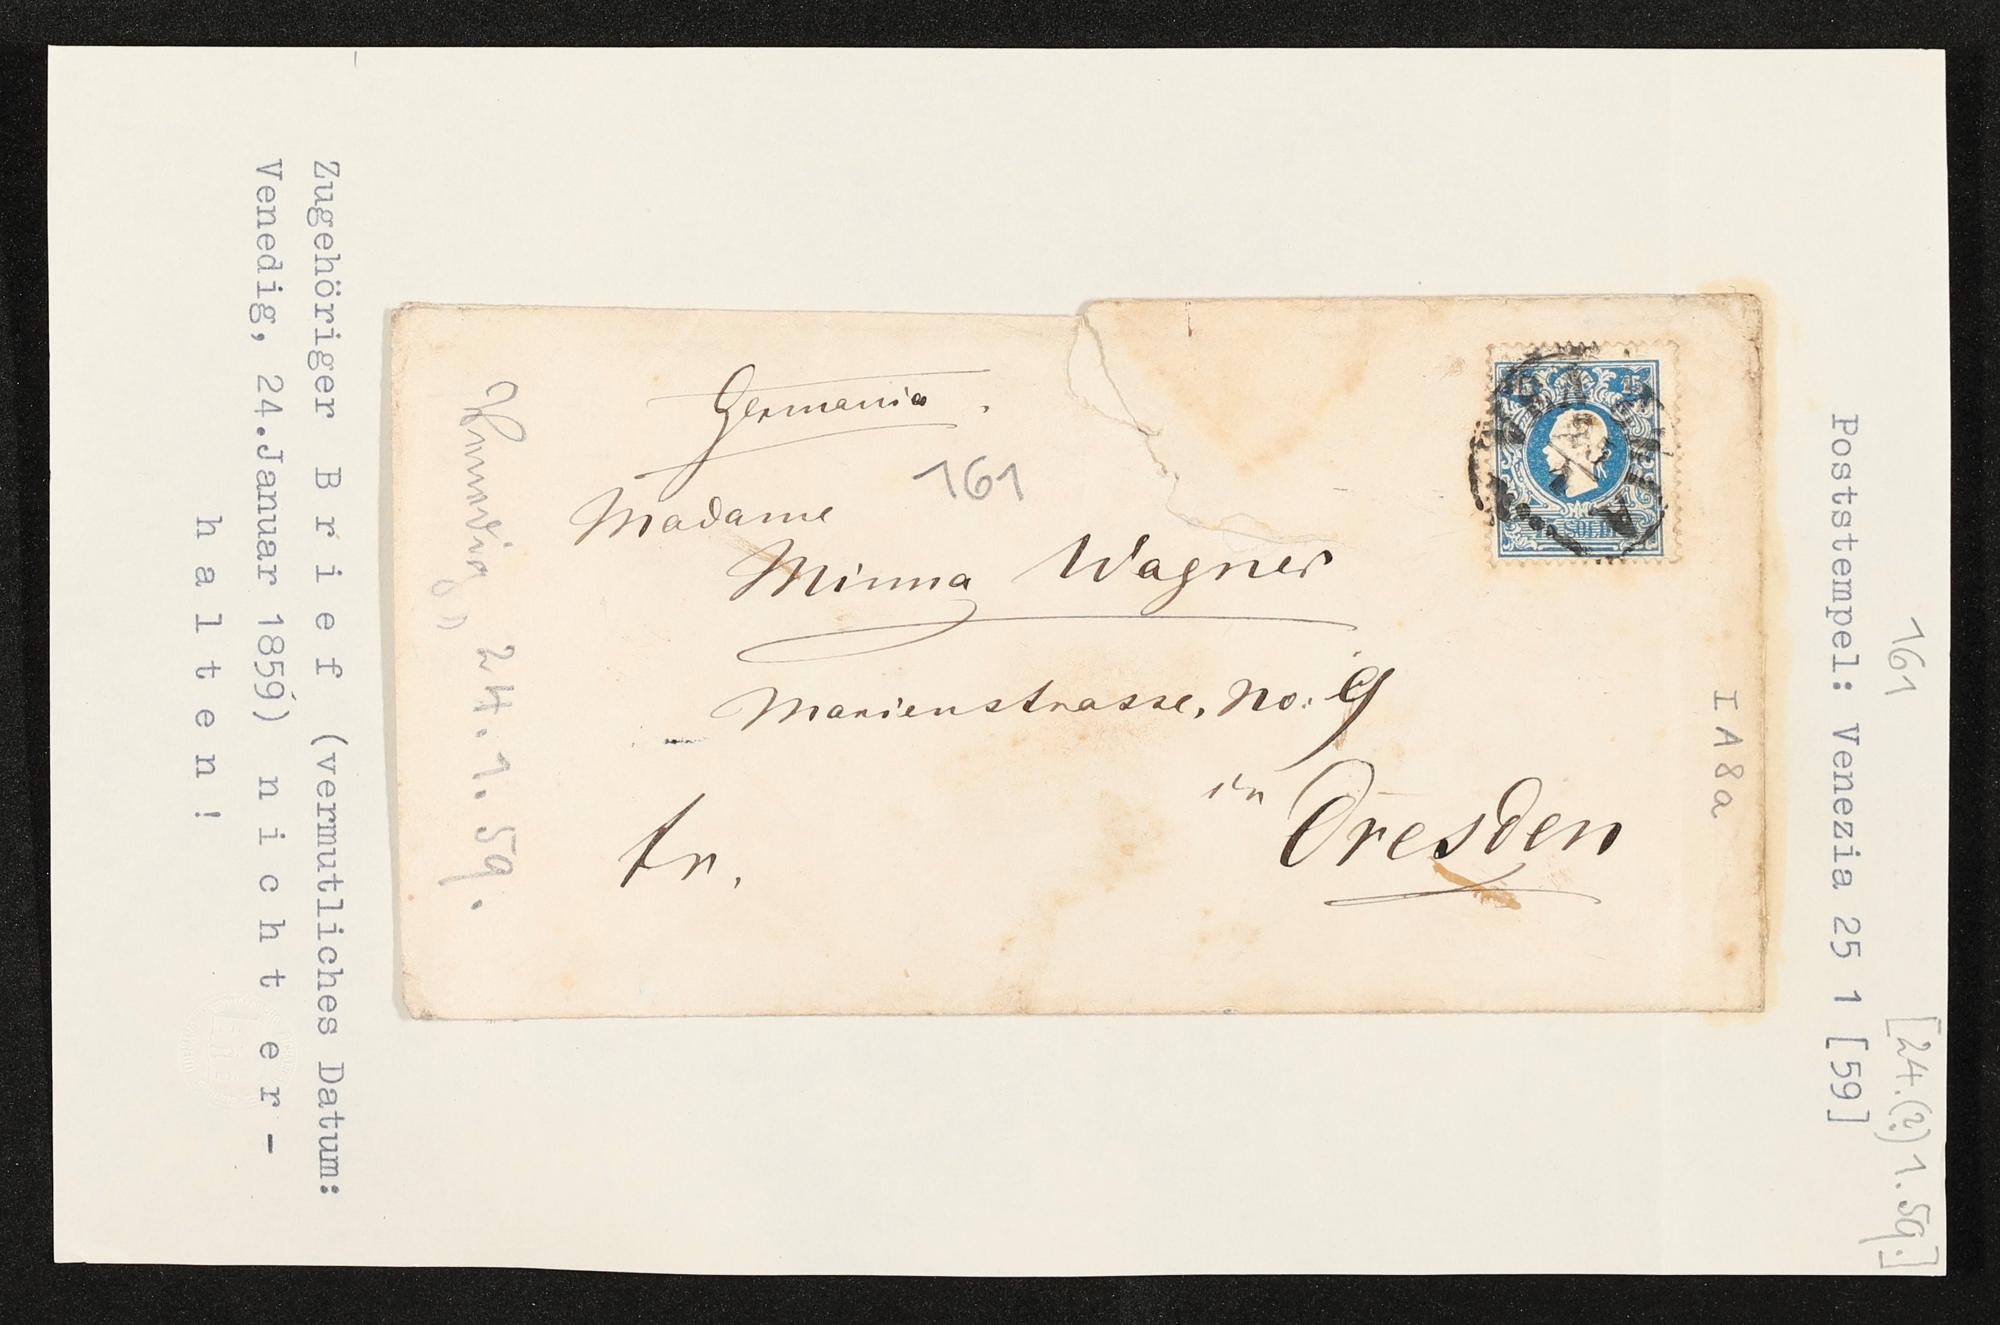 161
[24.(?) 1. 59.]
Poststempel: Venezia 25 1 [59]
I A 8 a
Germania.
161
Madame
Minna Wagner
Marienstrasse, No: 9
in Dresden
fr.
15 SOLDI
VENEZIA
25
1
24. 1. 59.
Zugehöriger B r i e f (vermutliches Datum:
Venedig, 24.Januar 1859) n i c h t e r -
h a l t e n !